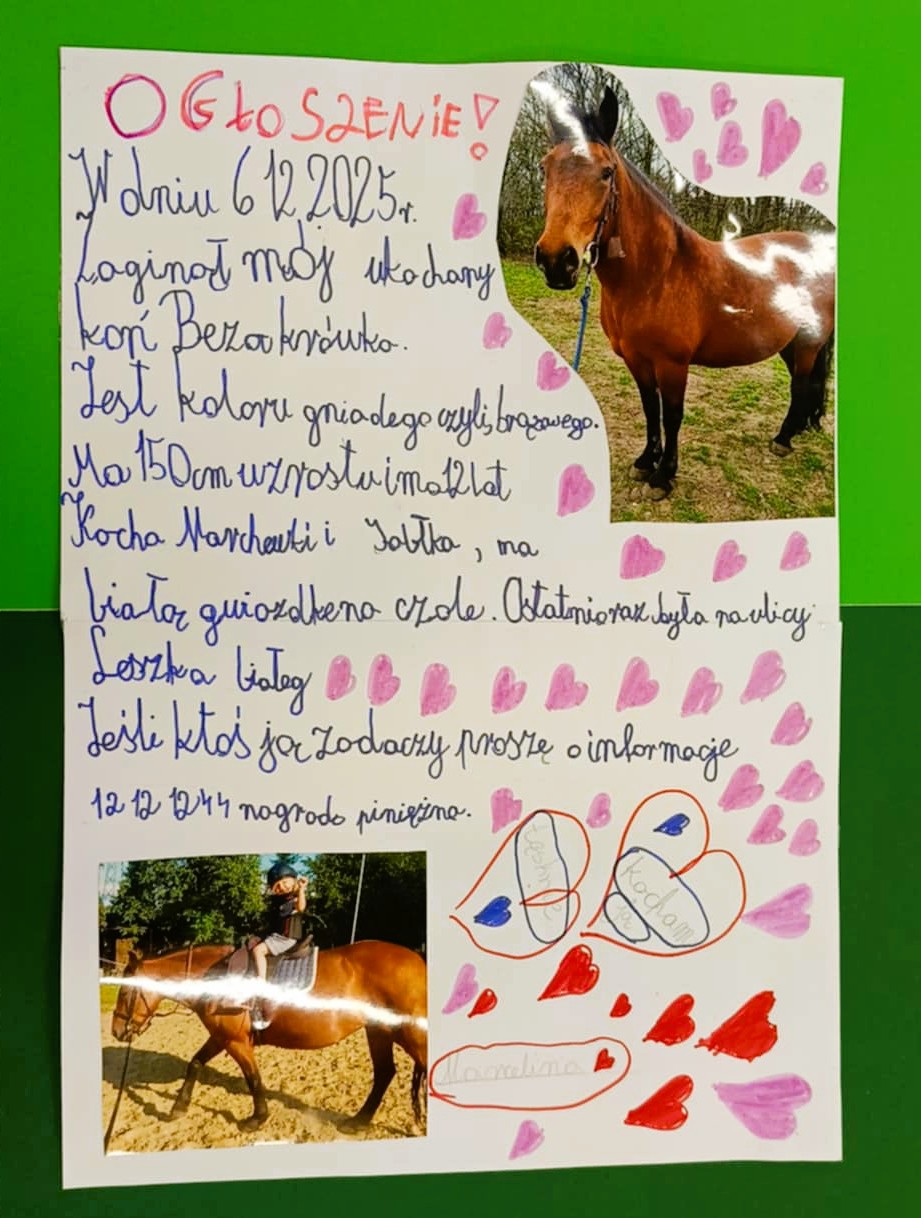 OGŁOSZENIE!
W dniu 6 12 2025r.
Zaginoł mój ukochany
koń Beza krówka.
Jest koloru gniadego czyli brązowego.
Ma 150cm wzrostu i ma 12 lat
Kocha Marchewki i Jabłka, ma
białą gwiozdkena czole. Ostatnio raz była na ulicy
Leszka białeg
Jeśli ktoś ją zodaczy proszę o informacje
12 12 12 44 nagroda piniężna.
tęsknię
kocham
ją